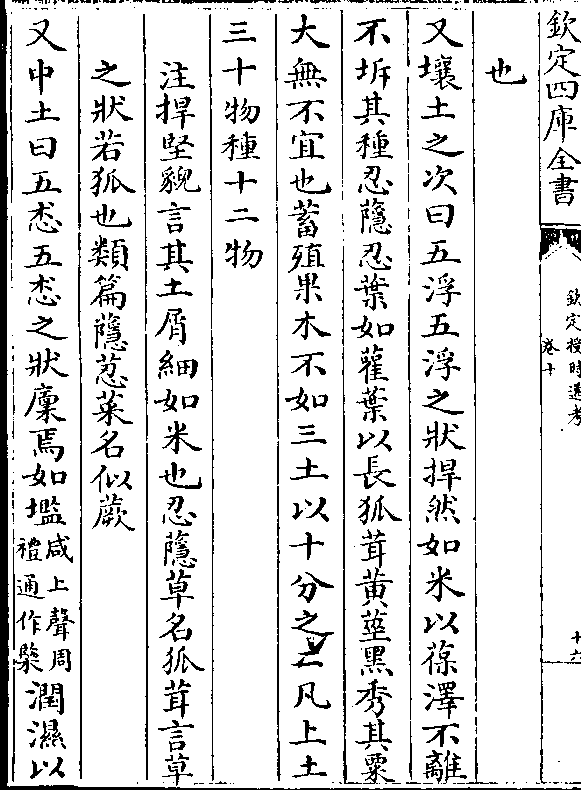 欽定四庫全書
欽定授時通考
卷十
十六
也
又壤土之次曰五浮五浮之狀捍然如米以葆澤不離
不坼其種忍蘟忍葉如雚葉以長狐茸黃莖黑秀其粟
大無不宜也蓄殖果木不如三土以十分之二凡上土
三十物種十二物
注捍堅貌言其土屑細如米也忍蘟草名狐茸言草
之狀若狐也類篇蘟荵菜名似蕨
又中土曰五怸五怸之狀廩焉如壏咸上聲周禮通作㯺潤濕以